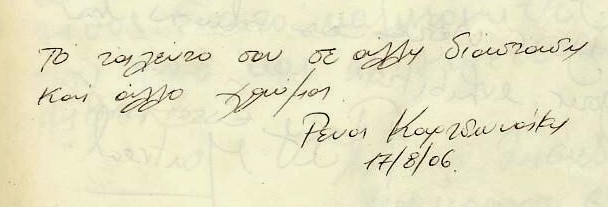 Το ταλέντο σου σε άλλη διάσταση
και άλλο χρώμα.
Ρένα
17/8/06